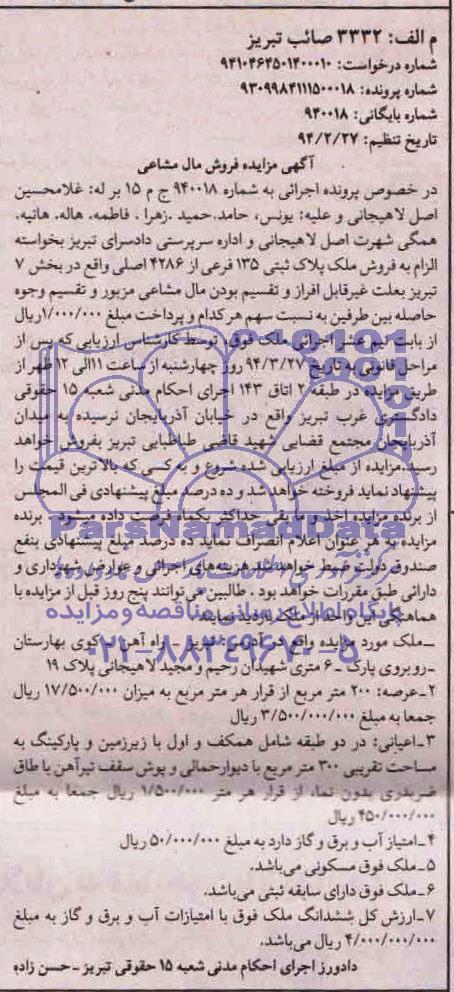 م الف: ۳۳۳۲ صائب تبریز
شماره درخواست: ۹۴۱۰۴۶۴۵۰۱۴۰۰۰۱۰
شماره پرونده: ۹۳۰۹۹۸۴۱۱۱۵۰۰۰۱۸
شماره بایگانی: ۹۴۰۰۱۸
تاریخ تنظیم: ۹۴/۲/۲۷
آگهی مزایده فروش مال مشاعی
در خصوص پرونده اجرائی به شماره ۹۴۰۰۱۸ ج م ۱۵ بر له: غلامحسین
اصل لاهیجانی و علیه: یونس، حامد.حمید .زهرا . فاطمه. هاله. هانیه.
همگی شهرت اصل لاهیجانی و اداره سرپرستی دادسرای تبریز بخواسته
الزام به فروش ملک پلاک ثبتی ۱۳۵ فرعی از ۴۲۸۶ اصلی واقع در بخش ۷
تبریز بعلت غیرقابل افراز و تقسیم بودن مال مشاعی مزبور و تقسیم وجوه
حاصله بین طرفین به نسبت سهم هر کدام و پرداخت مبلغ ۱/۰۰۰/۰۰۰ریال
از بابت نیم عشر اجرائی ملک فوق توسط کارشناس ارزیابی که پس از
مراحل قانونی به تاریخ ۹۴/۳/۲۷ روز چهارشنبه از ساعت ۱۱الی ۱۲ ظهر از
طریق مزایده در طبقه ۲ اتاق ۱۴۳ اجرای احکام مدنی شعبه ۱۵ حقوقی
دادگستری غرب تبریز واقع در خیابان آذربایجان نرسیده به میدان
آذربایجان مجتمع قضایی شهید قاضی طباطبایی تبریز بفروش خواهد
رسید.مزایده از مبلغ ارزیابی شده شروع و به کسی که بالاترین قیمت را
پیشنهاد نماید فروخته خواهد شد و ده درصد مبلغ پیشنهادی فی المجلس
از برنده مزایده اخذ و مابقی حداکثر یکماه فرصت داده میشود . برنده
مزایده به هر عنوان اعلام انصراف نماید ده درصد مبلغ پیشنهادی بنفع
صندوق دولت ضبط خواهد شد هزینه های اجرائی و عوارض شهرداری و
دارائی طبق مقررات خواهد بود . طالبین می توانند پنج روز قبل از مزایده با
هماهنگی این واحد از ملک بازدید نمایند.
ـ ملک مورد مزایده واقع در آدرس: تبریز ـ راه آهن ـ کوی بهارستان
ـ روبروی پارک ـ ۶ متری شهیدان رحیم و مجید لاهیجانی پلاک ۱۹
۲ـ عرصه: ۲۰۰ متر مربع از قرار هر متر مربع به میزان ۱۷/۵۰۰/۰۰۰ ریال
جمعا به مبلغ ۳/۵۰۰/۰۰۰/۰۰۰ ریال
۳ـ اعیانی: در دو طبقه شامل همکف و اول با زیرزمین و پارکینگ به
مساحت تقریبی ۳۰۰ متر مربع با دیوارحمالی و پوش سقف تیرآهن یا طاق
ضربدری بدون نما، از قرار هر متر ۱/۵۰۰/۰۰۰ ریال جمعا به مبلغ
۴۵۰/۰۰۰/۰۰۰ ریال
۴ـ امتیاز آب و برق و گاز دارد به مبلغ ۵۰/۰۰۰/۰۰۰ ریال
۵ـ ملک فوق مسکونی می باشد.
۶ـ ملک فوق دارای سابقه ثبتی می باشد.
۷ـ ارزش کل ششدانگ ملک فوق با امتیازات آب و برق و گاز به مبلغ
۴/۰۰۰/۰۰۰/۰۰۰ ریال می باشد.
دادورز اجرای احکام مدنی شعبه ۱۵ حقوقی تبریز ـ حسن زاده
ParsNamadData
پایگاه اطلاع رسانی مناقصه و مزایده
۰۲۱-۸۸۳۴۹۶۷۰-۵